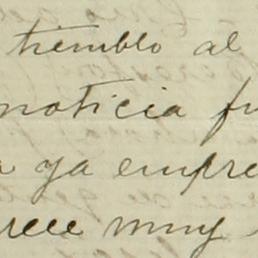 tiemblo al
noticia fu
a ya empre
rece muy